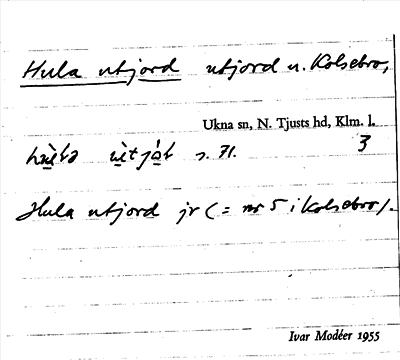 Hula utjord utjord u. Kolsebro,
Ukna sn, N. Tjusts hd, Klm. l.
s. 71. 3
Hula utjord jr (= nr 5 i Kolsebro).
Ivar Modéer 1955